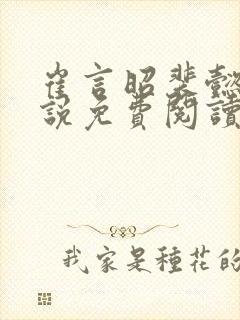 崔言昭裴懿
說免費閱讀
我家是種花的